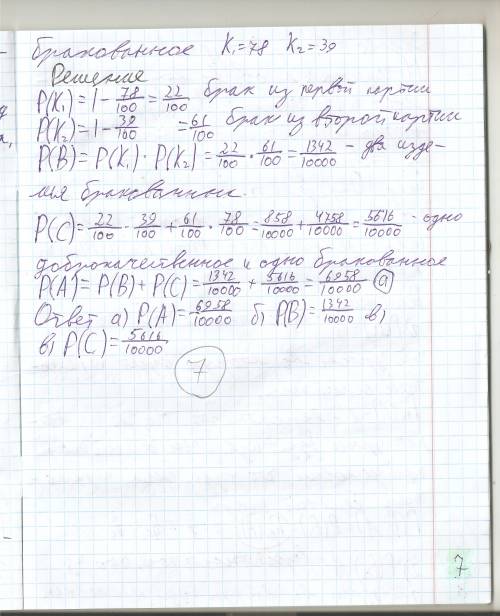 бракованное K₁=78 K₂=39
Решение
P(K₁)=1-78/100=22/100 брак из первой партии
P(K₂)=1-39/100=61/100 брак из второй партии
P(B)=P(K₁)·P(K₂)=22/100·61/100=1342/10000 - два изде-
лья бракованных.
P(C)=22/100·39/100+61/100·78/100=858/10000+4758/10000=5616/10000 - одно
доброкачественное и одно бракованное
P(A)=P(B)+P(C)=1342/10000+5616/10000=6958/10000 а
Ответ а) P(A)=6958/10000 б) P(B)=1342/10000 в)
в) P(C)=5616/10000
7
7